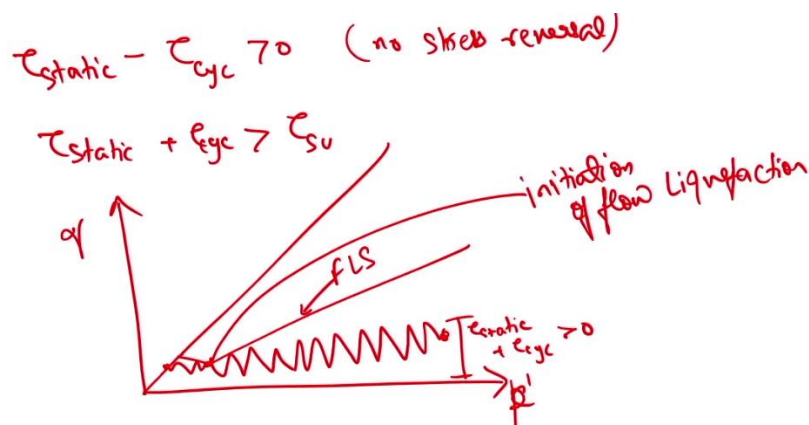 τstatic - τcyc > 0 (no stress reversal)
τstatic + τcyc > τsu
initiation
of flow Liquefaction
q
FLS
τstatic
+ τcyc > 0
p'